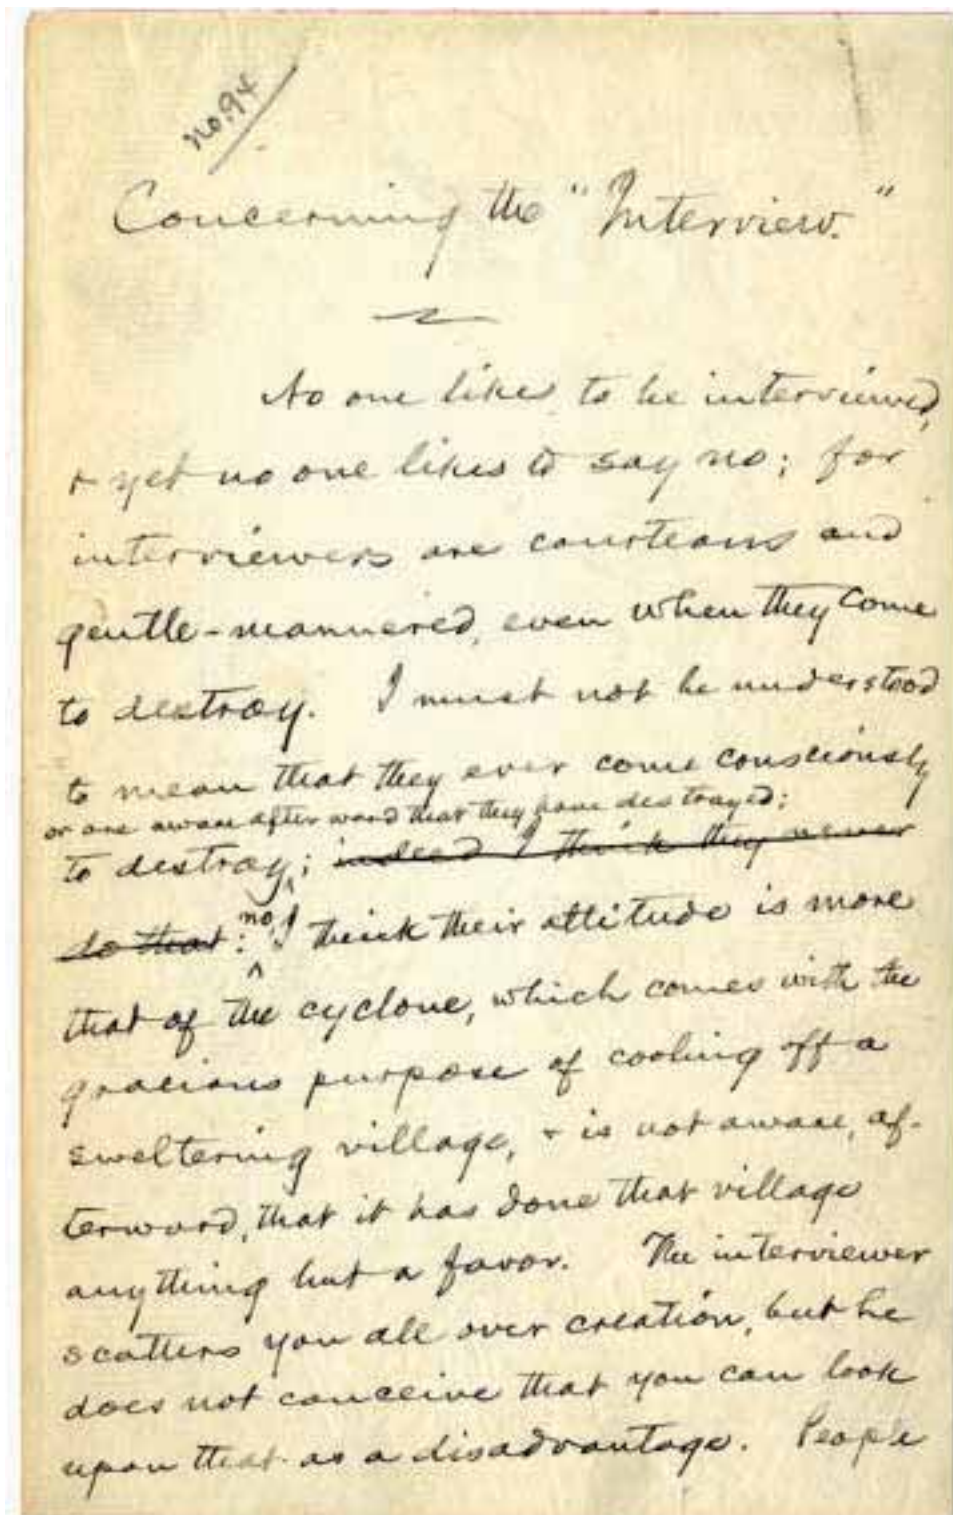 no. 94
Concerning the "Interview."
No one likes to be interviewed,
& yet no one likes to say no; for
interviewers are courteous and
gentle-mannered, even when they come
to destroy. I must not be understood
to mean that they ever come consciously
or are aware afterward that they have destroyed;
to destroy; indeed I think they never
do that: no, I think their attitude is more
that of the cyclone, which comes with the
gracious purpose of cooling off a
sweltering village, & is not aware, af-
terward, that it has done that village
anything but a favor. The interviewer
scatters you all over creation, but he
does not conceive that you can look
upon that as a disadvantage. People